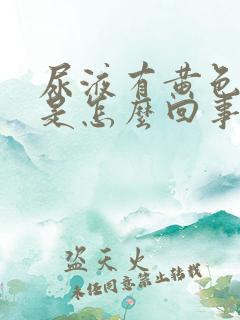 尿液有黄色
是怎麼回事
盗天火
未经同意禁止转载